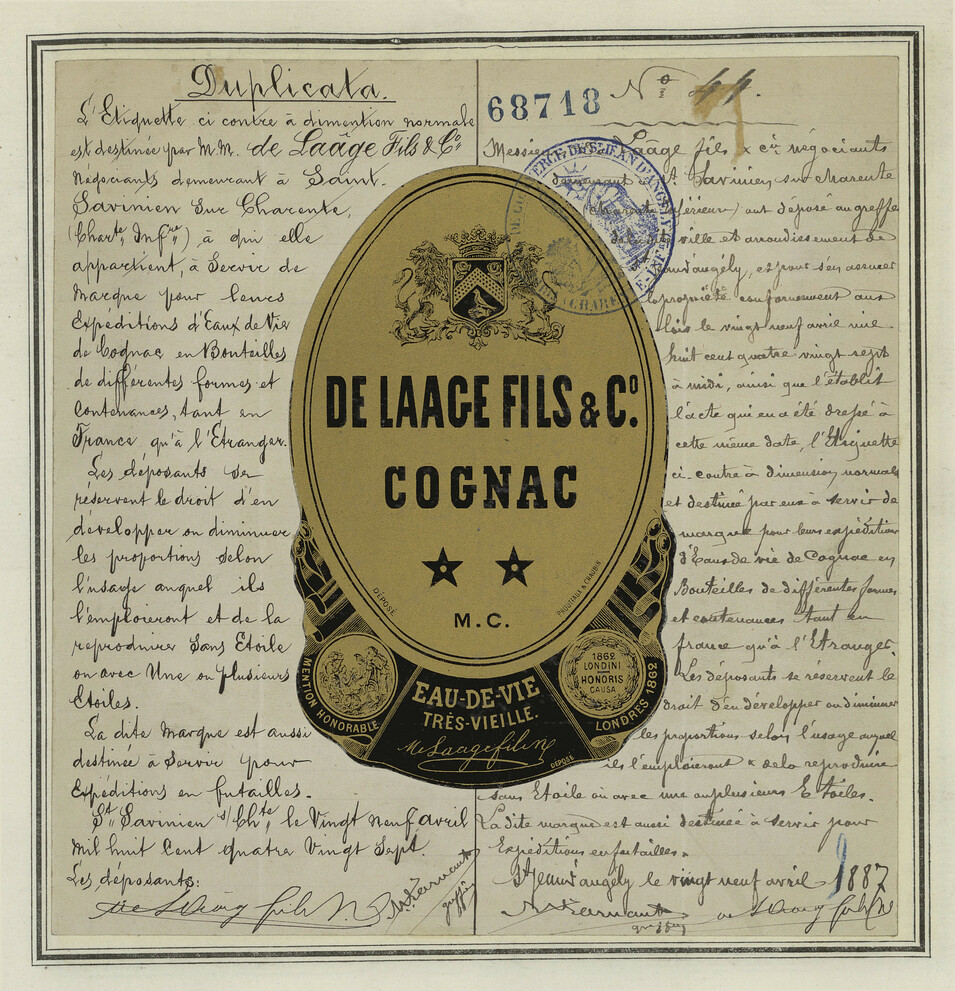 Duplicata.
L'Etiquette ci contre à dimention normale
est destinée par M.M. de Laâge Fils & Co
Négociants demeurant à Saint.
Savinien Sur Charente,
(Charte Infre) à qui elle
appartient, à Servir de
Marque pour leurs
Expéditions d'Eaux de Vie
de Cognac en Bouteilles
de différentes formes et
Contenances, tant en
France qu'à l'Etranger.
Les déposants se
réservent le droit d'en
développer ou diminuer
les proportions selon
l'usage auquel ils
l'emploieront et de la
reproduire Sans Etoile
ou avec Une ou plusieurs
Etoiles.
La dite Marque est aussi
destinée à Servir pour
Expéditions en futailles.
St Savinien s/ Chte, le Vingt neuf avril
Mil huit Cent quatre Vingt Sept.
Les déposants:
68718
No 44.
Messieurs de Laage fils & cie négociants
demeurant à St Savinien sur Charente
(charente inférieure) ont déposé au greffe
ville et arrondissement de
Jean d'angély, et pour s'en assurer
la propriété conformément aux
lois le vingt neuf avril mil
huit cent quatre vingt sept
à midi, ainsi que l'établit
l'acte qui en a été dressé à
cette même date, l'Etiquette
ci-contre à dimension normale
et destinée par eux à servir de
marque pour leurs expéditions
d'Eaux de vie de Cognac en
Bouteilles de différentes formes
et contenances tant en
france qu'à l'Etranger.
Les déposants se réservent le
droit d'en développer ou diminuer
les proportions selon l'usage auquel
ils l'emploieront & de la reproduire
sans Etoile ou avec une ou plusieurs Etoiles.
La dite marque est aussi destinée à servir pour
Expéditions en futailles.
St Jean d'angély le vingt neuf avril 1887
DE LAAGE FILS & Co.
COGNAC
M.C.
DÉPOSÉ
MENTION HONORABLE
EAU-DE-VIE
TRÉS-VIEILLE.
1862
LONDINI
HONORIS
CAUSA
LONDRES 1862
DÉPOSÉ